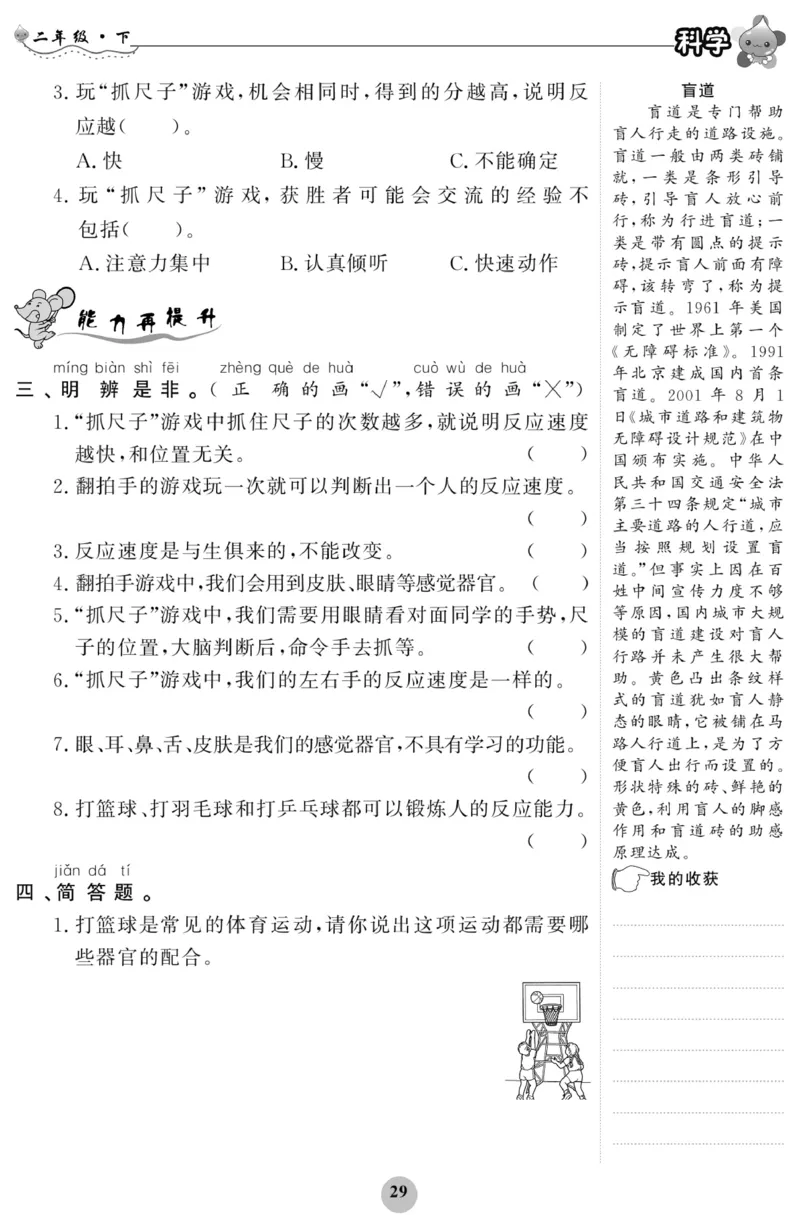 二年级·下
科学
3. 玩“抓尺子”游戏,机会相同时,得到的分越高,说明反
应越(　　)。
A. 快　　B. 慢　　C. 不能确定
4. 玩“抓尺子”游戏,获胜者可能会交流的经验不
包括(　　)。
A. 注意力集中　　B. 认真倾听　　C. 快速动作
能力再提升
míng biàn shì fēi　　zhèng què de huà　　cuò wù de huà
三、明辨是非。(正确的画“√”,错误的画“╳”)
1. “抓尺子”游戏中抓住尺子的次数越多,就说明反应速度
越快,和位置无关。　　(　　)
2. 翻拍手的游戏玩一次就可以判断出一个人的反应速度。
(　　)
3. 反应速度是与生俱来的,不能改变。　　(　　)
4. 翻拍手游戏中,我们会用到皮肤、眼睛等感觉器官。　(　　)
5. “抓尺子”游戏中,我们需要用眼睛看对面同学的手势,尺
子的位置,大脑判断后,命令手去抓等。　　(　　)
6. “抓尺子”游戏中,我们的左右手的反应速度是一样的。
(　　)
7. 眼、耳、鼻、舌、皮肤是我们的感觉器官,不具有学习的功能。
(　　)
8. 打篮球、打羽毛球和打乒乓球都可以锻炼人的反应能力。
(　　)
jiǎn dá tí
四、简答题。
1. 打篮球是常见的体育运动,请你说出这项运动都需要哪
些器官的配合。
盲道
盲道是专门帮助
盲人行走的道路设施。
盲道一般由两类砖铺
就,一类是条形引导
砖,引导盲人放心前
行,称为行进盲道;一
类是带有圆点的提示
砖,提示盲人前面有障
碍,该转弯了,称为提
示盲道。1961 年美国
制定了世界上第一个
《无障碍标准》。1991
年北京建成国内首条
盲道。2001 年 8 月 1
日《城市道路和建筑物
无障碍设计规范》在中
国颁布实施。中华人
民共和国交通安全法
第三十四条规定“城市
主要道路的人行道,应
当按照规划设置盲
道。”但事实上因在百
姓中间宣传力度不够
等原因,国内城市大规
模的盲道建设对盲人
行路并未产生很大帮
助。黄色凸出条纹样
式的盲道犹如盲人静
态的眼睛,它被铺在马
路人行道上,是为了方
便盲人出行而设置的。
形状特殊的砖、鲜艳的
黄色,利用盲人的脚感
作用和盲道砖的助感
原理达成。
我的收获
29